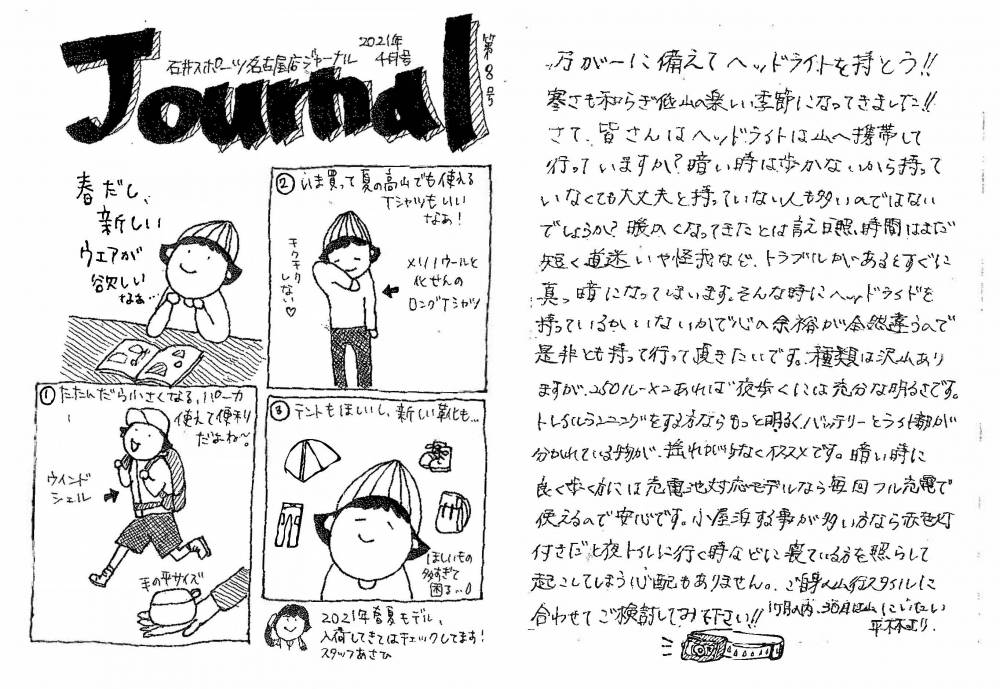 Journal
第8号
2021年
4月号
石井スポーツ名古屋店ジャーナル
春だし、
新しい
ウェアが
欲しい
なぁ…
① たたんだら小さくなる、パーカー
使えて便利
だよね〜
ウインド
シェル
手の平サイズ
② いま買って夏の高山でも使える
Tシャツもいい
なぁ!
チクチク
しない♡
メリノウールと
化せんの
ロングTシャツ
③ テントもほしいし、新しい靴も…
ほしいもの
多すぎて
困る…
2021年春夏モデル、
入荷してきてはチェックしてます!
スタッフあさひ
万が一に備えてヘッドライトを持とう!!
寒さも和らぎ低山の楽しい季節になってきました!!
さて、皆さんはヘッドライトは山へ携帯して
行っていますか?暗い時は歩かないから持って
いなくても大丈夫と持っていない人も多いのではない
でしょうか?暖かくなってきたとは言え日照時間はまだ
短く道迷いや怪我など、トラブルがあるとすぐに
真っ暗になってしまいます。そんな時にヘッドライトを
持っているかいないかで心の余裕が全然違うので
是非とも持って行って頂きたいです。種類は沢山あり
ますが、260ルーメンあれば夜歩くには充分な明るさです。
トレイルランニングをする方ならもっと明るく、バッテリーとライト部が
分かれている物が、揺れがなくオススメです。暗い時に
良く歩く方には充電池対応モデルなら毎回フル充電で
使えるので安心です。小屋泊する事が多い方なら赤色灯
付きだと夜トイレに行く時などに寝ている方を照らして
起こしてしまう心配もありません。ご自身の山行スタイルに
合わせてご検討してみて下さい!!
平林より.